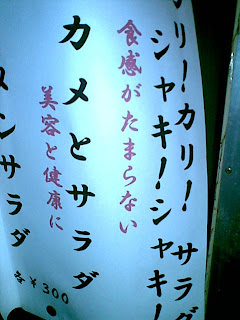 カリ!カリ! サラダ
シャキ!シャキ!
食感がたまらない
カメとサラダ
美容と健康に
メンサラダ
各¥300